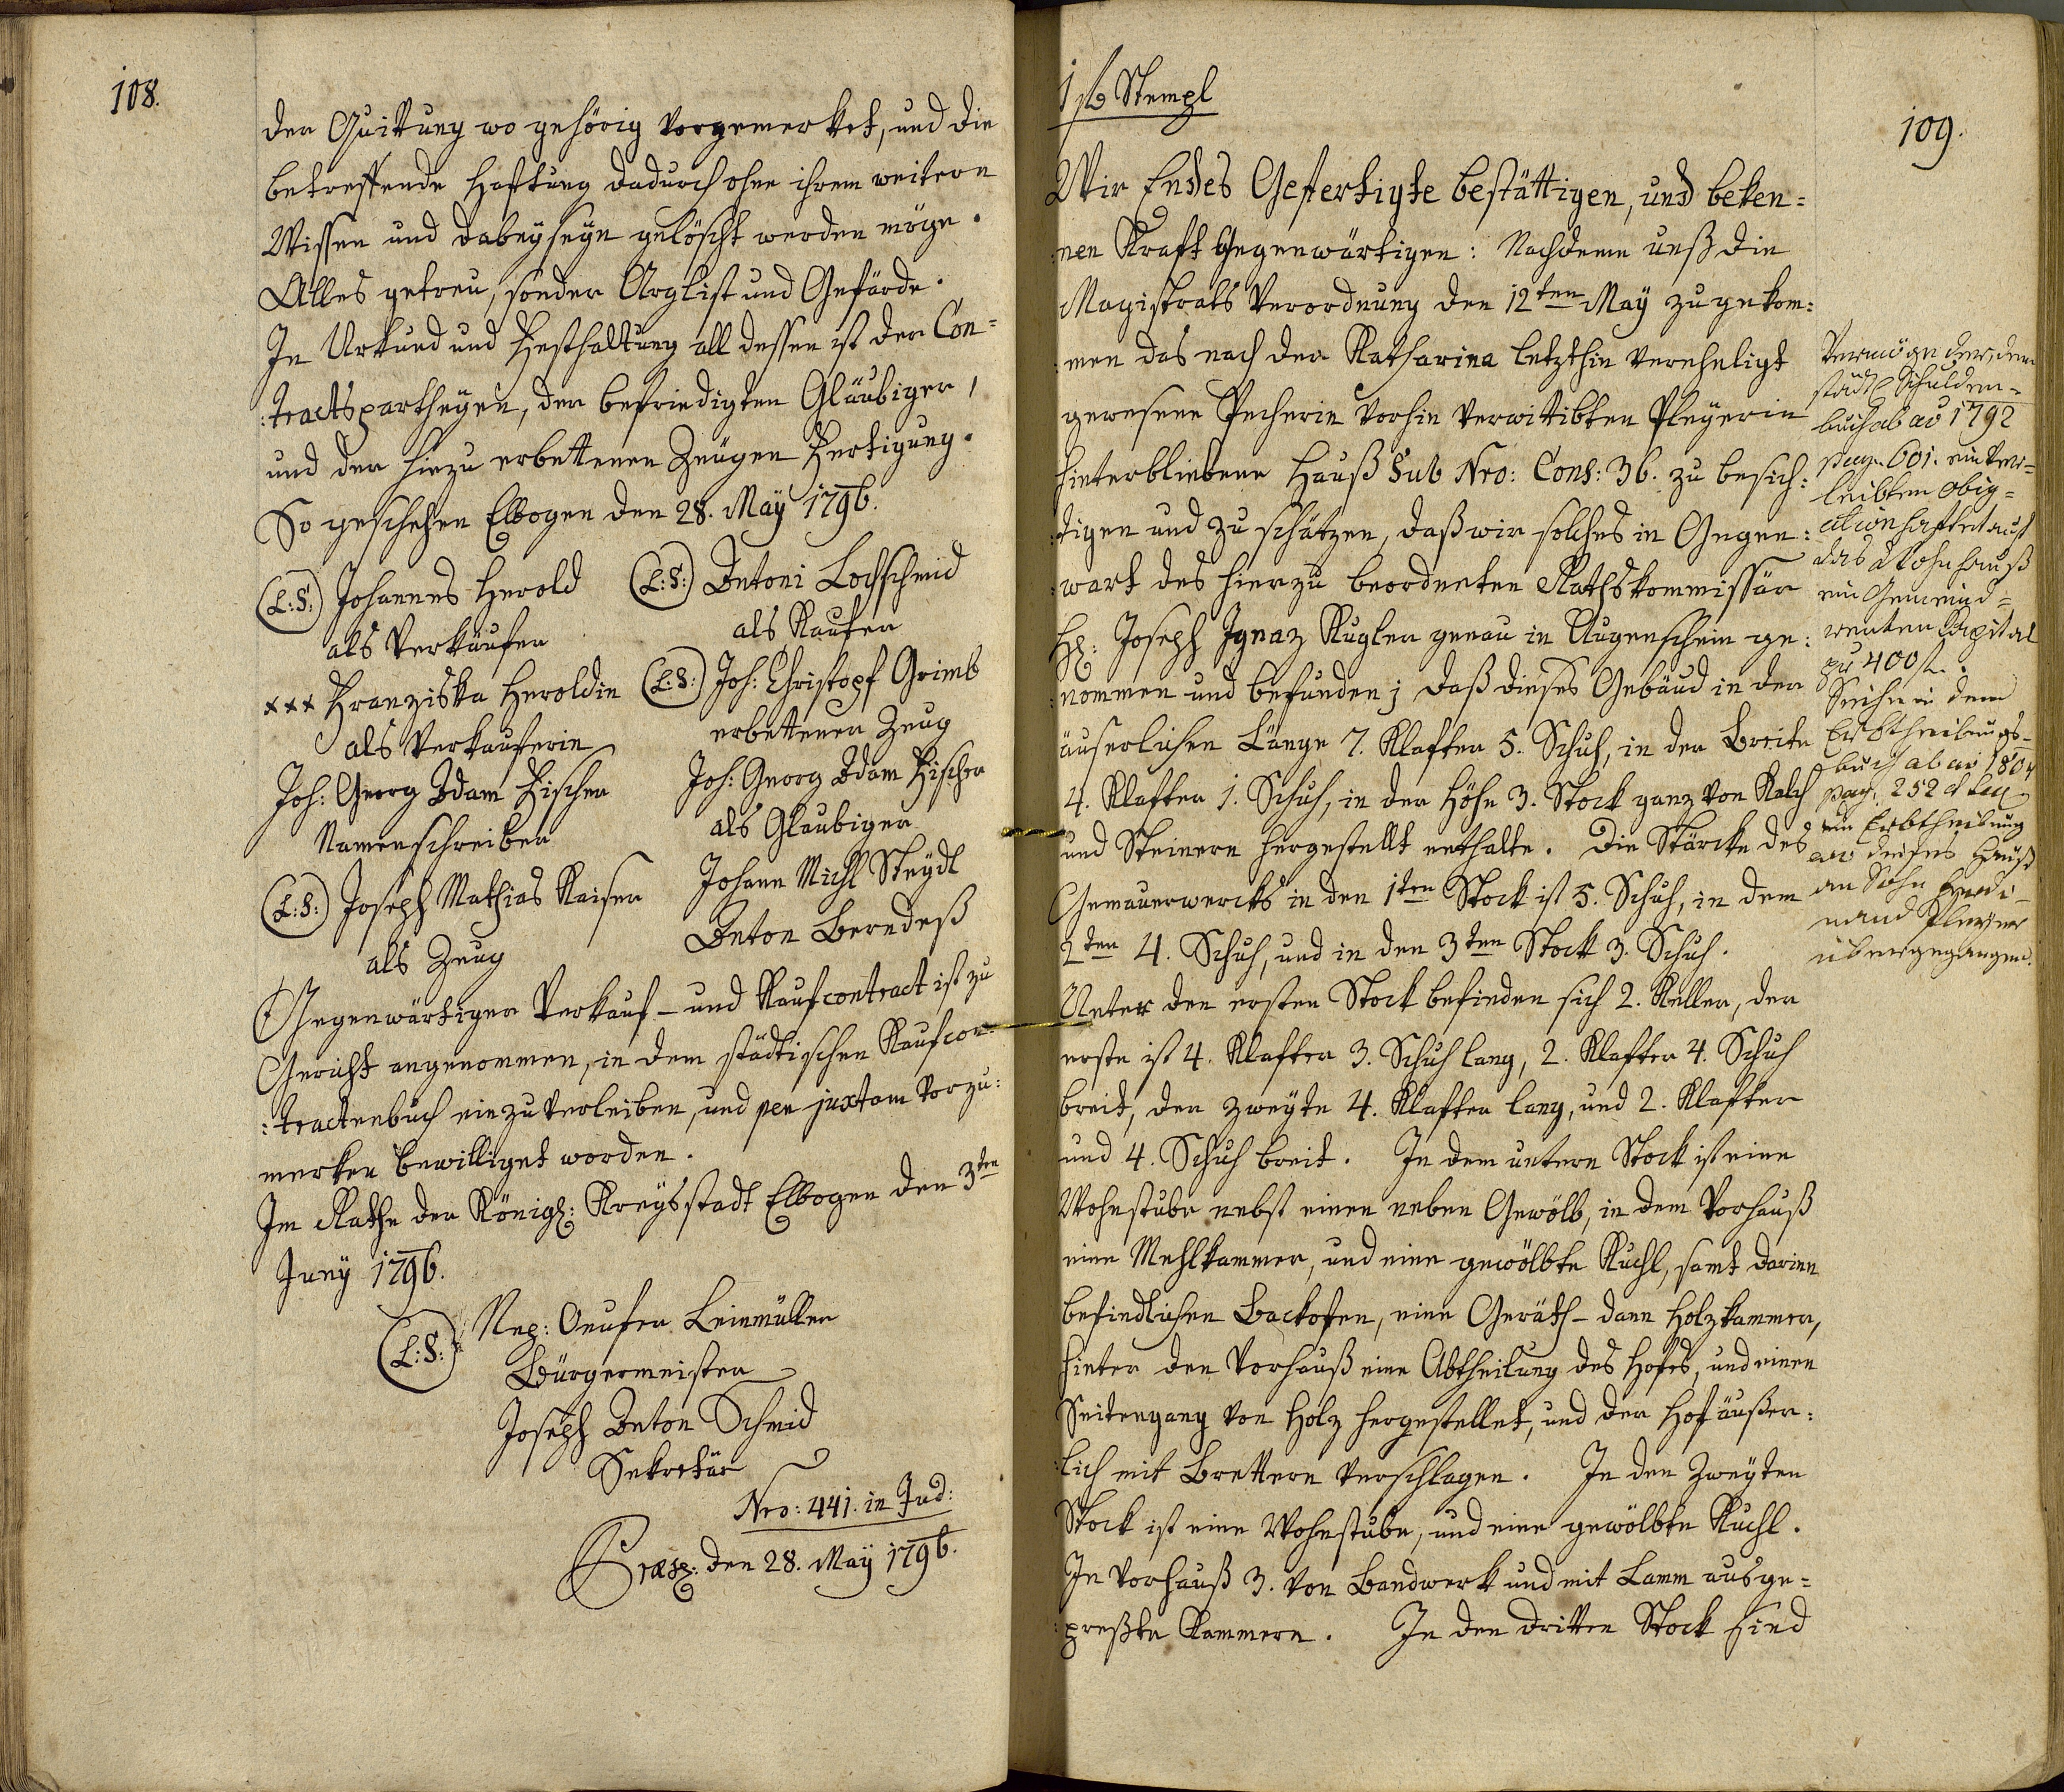 108.
der Quittung wo gehörig vorgemerket, und die
betreffende Haftung dadurch ohne ihrem weitern
Wissen und dabeyseyn gelöscht werden möge.
Alles getreu, sonder Arglist und Gefärde.
In Urkund und Festhaltung all dessen ist der Con=
:tractspartheyen, der befriedigten Gläubiger,
und der hiezu erbettenen Zeugen Fertigung.
So geschehen Elbogen den 28. May 1796.
(L:S:) Johannes Herold
als Verkäufer
xxx Franziska Heroldin
als Verkauferin
Joh: Georg Adam Fischer
Namenschreiber
(L:S:) Joseph Mathias Kaiser
als Zeug
(L:S:) Antoni Lochschmid
als Kaufer
(L:S:) Joh: Christoph Grimb
erbettener Zeug
Joh: Georg Adam Fischer
als Glaubiger
Johann Michl Steydl
Anton Berndeß
Gegenwärtiger Verkauf- und Kaufcontract ist zu
Gericht angenommen, in dem städtischen Kaufcon=
:tractenbuch einzuverleiben, und per juxtam vorzu:
merken bewilliget worden.
Im Rathe der Königl: Kreysstadt Elbogen den 3ten
Juny 1796.
(L:S:) Nep: Leinmüller
Bürgermeister
Joseph Anton Schmid
Sekretär
Nro: 441. in Jud:
Præs: den 28. May 1796.
1 fl Stempl
109.
Wir Endes Gefertigte bestättigen, und beken=
:nen Kraft Gegenwärtigen: Nachdeme unß die
Magistrats Verordnung den 12ten May zugekom:
:men das nach der Katharina letzthin vereheligt
gewesene Pecherin vorhin verwittibten Pleyerin
hinterbliebene Hauß Sub Nro: Cons: 36. zu besich:
:tigen und zu schätzen, daß wir solches in Gegen:
:wart des hierzu beorderten Rathskommissär
H: Joseph Ignaz Kugler genau in Augenschein ge:
:nommen und befunden; daß dieses Gebäud in der
äuserlichen Länge 7. Klafter 5. Schuh, in der Breite
4. Klafter 1. Schuh, in der Höhe 3. Stock ganz von Kalch
und Steinern hergestellt enthalte. Die Stärcke des
Gemauerwercks in den 1ten Stock ist 5. Schuh, in dem
2ten 4. Schuh, und in den 3ten Stock 3. Schuh.
Unter den ersten Stock befinden sich 2. Keller, der
erste ist 4. Klafter 3. Schuh lang, 2. Klafter 4. Schuh
breit, der zweyte 4. Klafter lang, und 2. Klafter
und 4. Schuh breit. In dem untern Stock ist eine
Wohnstube nebst einen neben Gewölb, in dem Vorhauß
eine Mehlkammer, und eine gewölbte Kuchl, samt darinn
befindlichen Backofen, eine Geräth- dann Holzkammer,
hinter den Vorhauß eine Abtheilung des Hofes, und einen
Seitengang von Holz hergestellet, und der Hof äußer:
:lich mit Brettern verschlagen. In den zweyten
Stock ist eine Wohnstube, und eine gewölbte Kuchl.
In Vorhauß 3. von Bandwerk und mit Lamm ausge=
:preßte Kammern. In den dritten Stock sind
Vermöge der, dem
städt Schulden-
buch ab ao 1792
pag. 601. einver=
leibten Oblig=
ation haftet auf
das Wohnhauß
ein Gemeind=
renten Capital
zu 400 fl.
Siehe in dem
Erbtheilungs-
buch ab ao 1804
pag. 252
ein Erbtheilung
wo dieses Hauß
an Sohn Ferdi-
nand Pleyer
übergegangen.